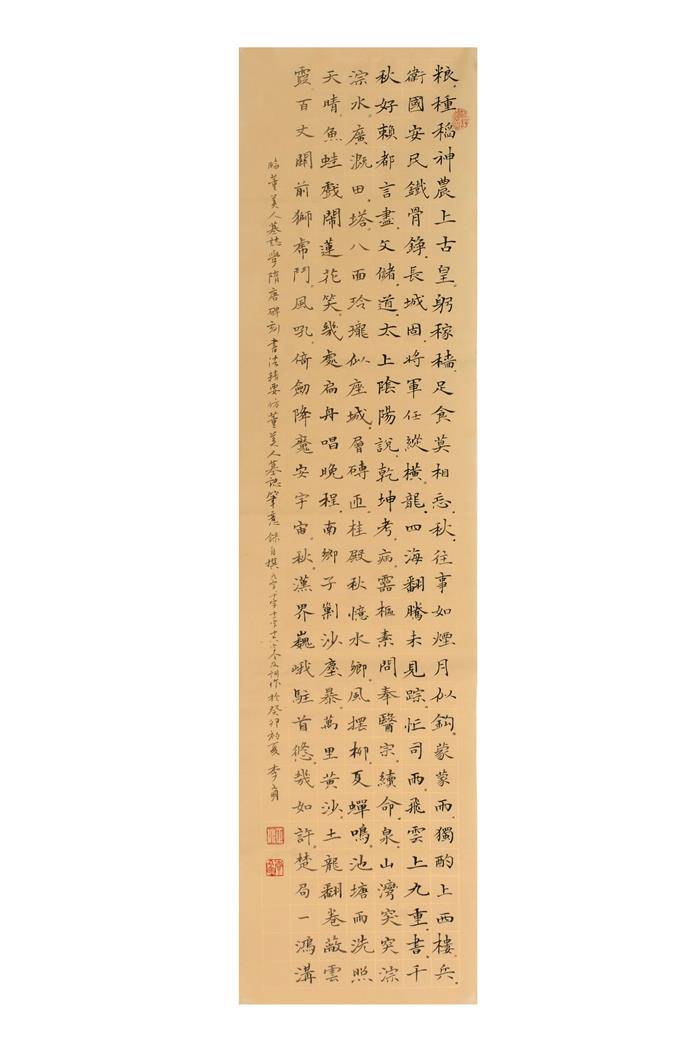 粮種稻神農上古皇躬稼穡足食莫相忘秋往事如煙月似鈎蒙蒙雨獨酌上西樓兵
衛國安民鐵骨錚長城固將軍任縱橫龍四海翻騰未見踪忙司雨飛雲上九重書千
秋好賴都言盡文儲道太上陰陽說乾坤考病靈樞素問奉醫宗續命泉山濟突突淙
淙水廣溉田塔八面玲瓏似座城層磚匝桂殿秋憶水鄉風擺柳夏蟬鳴池塘雨洗照
天晴魚蛙戲鬧蓮花笑幾處扁舟唱晚程南鄉子剿沙塵暴萬里黃沙土龍翻卷蔽雲
霞百丈關前獅虎鬥風吼倚劍降魔安宇宙秋漢界巍峨駐首慫幾如許楚局一鴻溝
臨董美人墓誌學隋唐碑刻書法精要仿董美人墓誌筆意錄自撰六字十字十字十六字令及詞作於癸卯初夏李